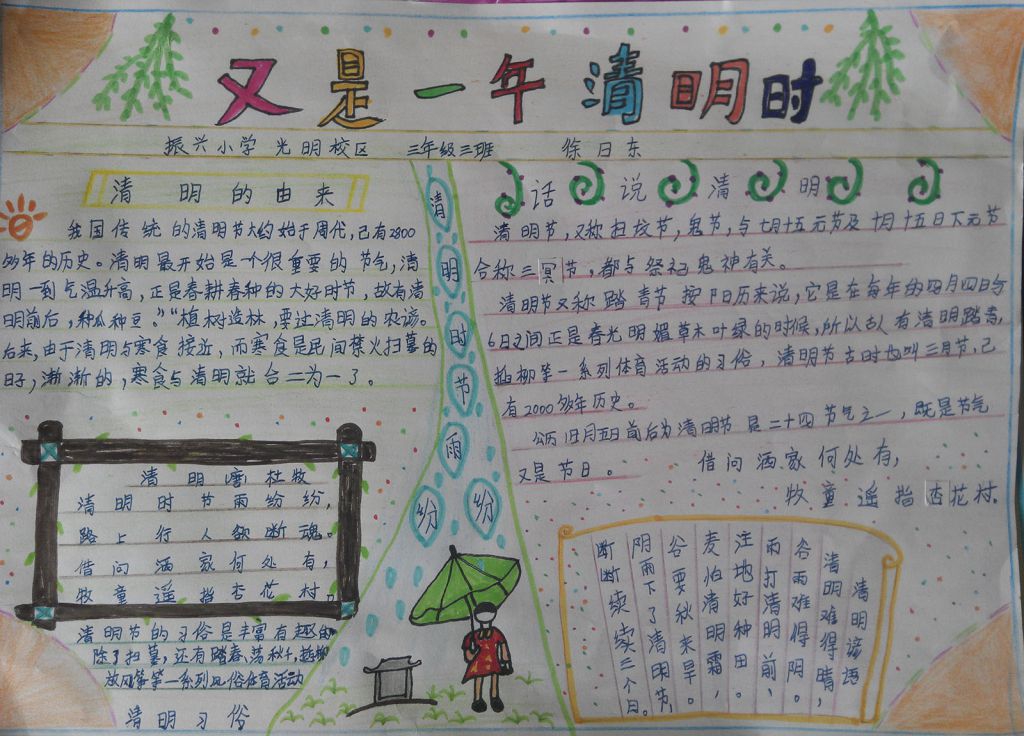 又是一年清明时
振兴小学光明校区 三年级三班 徐日东
清明的由来
我国传统的清明节大约始于周代,已有2800
多年的历史。清明最开始是一个很重要的节气,清
明一到气温升高,正是春耕春种的大好时节,故有清
明前后,种瓜种豆。”“植树造林,要过清明的农谚。
后来,由于清明与寒食接近,而寒食是民间禁火扫墓的
日子,渐渐的,寒食与清明就合二为一了。
清明 唐 杜牧
清明时节雨纷纷,
路上行人欲断魂。
借问酒家何处有,
牧童遥指杏花村。
清明节的习俗是丰富有趣的
除了扫墓,还有踏春、荡秋千,插柳
放风筝等一系列风俗体育活动
清明习俗
清明时节雨纷纷
话说清明
清明节,又称扫坟节,鬼节,与七月十五元节及十月十五日下元节
合称三冥节,都与祭祀鬼神有关。
清明节又称踏青节 按阳历来说,它是在每年的四月四日与
6日之间正是春光明媚草木叶绿的时候,所以古人有清明踏青,
插柳等一系列体育活动的习俗,清明节古时也叫三月节,已
有2000多年历史。
公历四月五日前后为清明节是二十四节气之一,既是节气
又是节日。
借问酒家何处有,
牧童遥指杏花村。
清明谚语
清明难得晴,
谷雨难得阴。
雨打清明前,
洼地好种田。
麦怕清明霜,
谷要秋来旱。
阴雨下了清明节,
断断续续三个日。